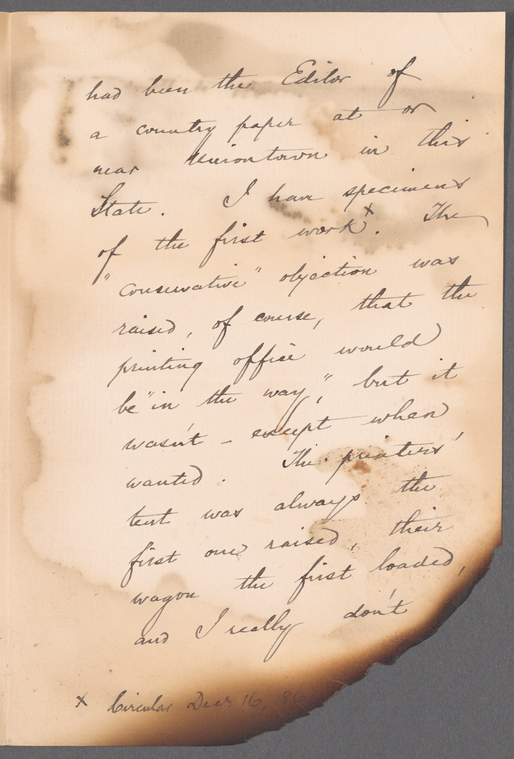 had been the Editor of
a country paper at or
near Uniontown in this
State. I have specimens
of the first work x. The
"conservative" objection was
raised, of course, that the
printing office would
be "in the way," but it
wasn't - except when
wanted. The printers'
tent was always the
first one raised, their
wagon the first loaded,
and I really don't
x Circular Decr. 16,